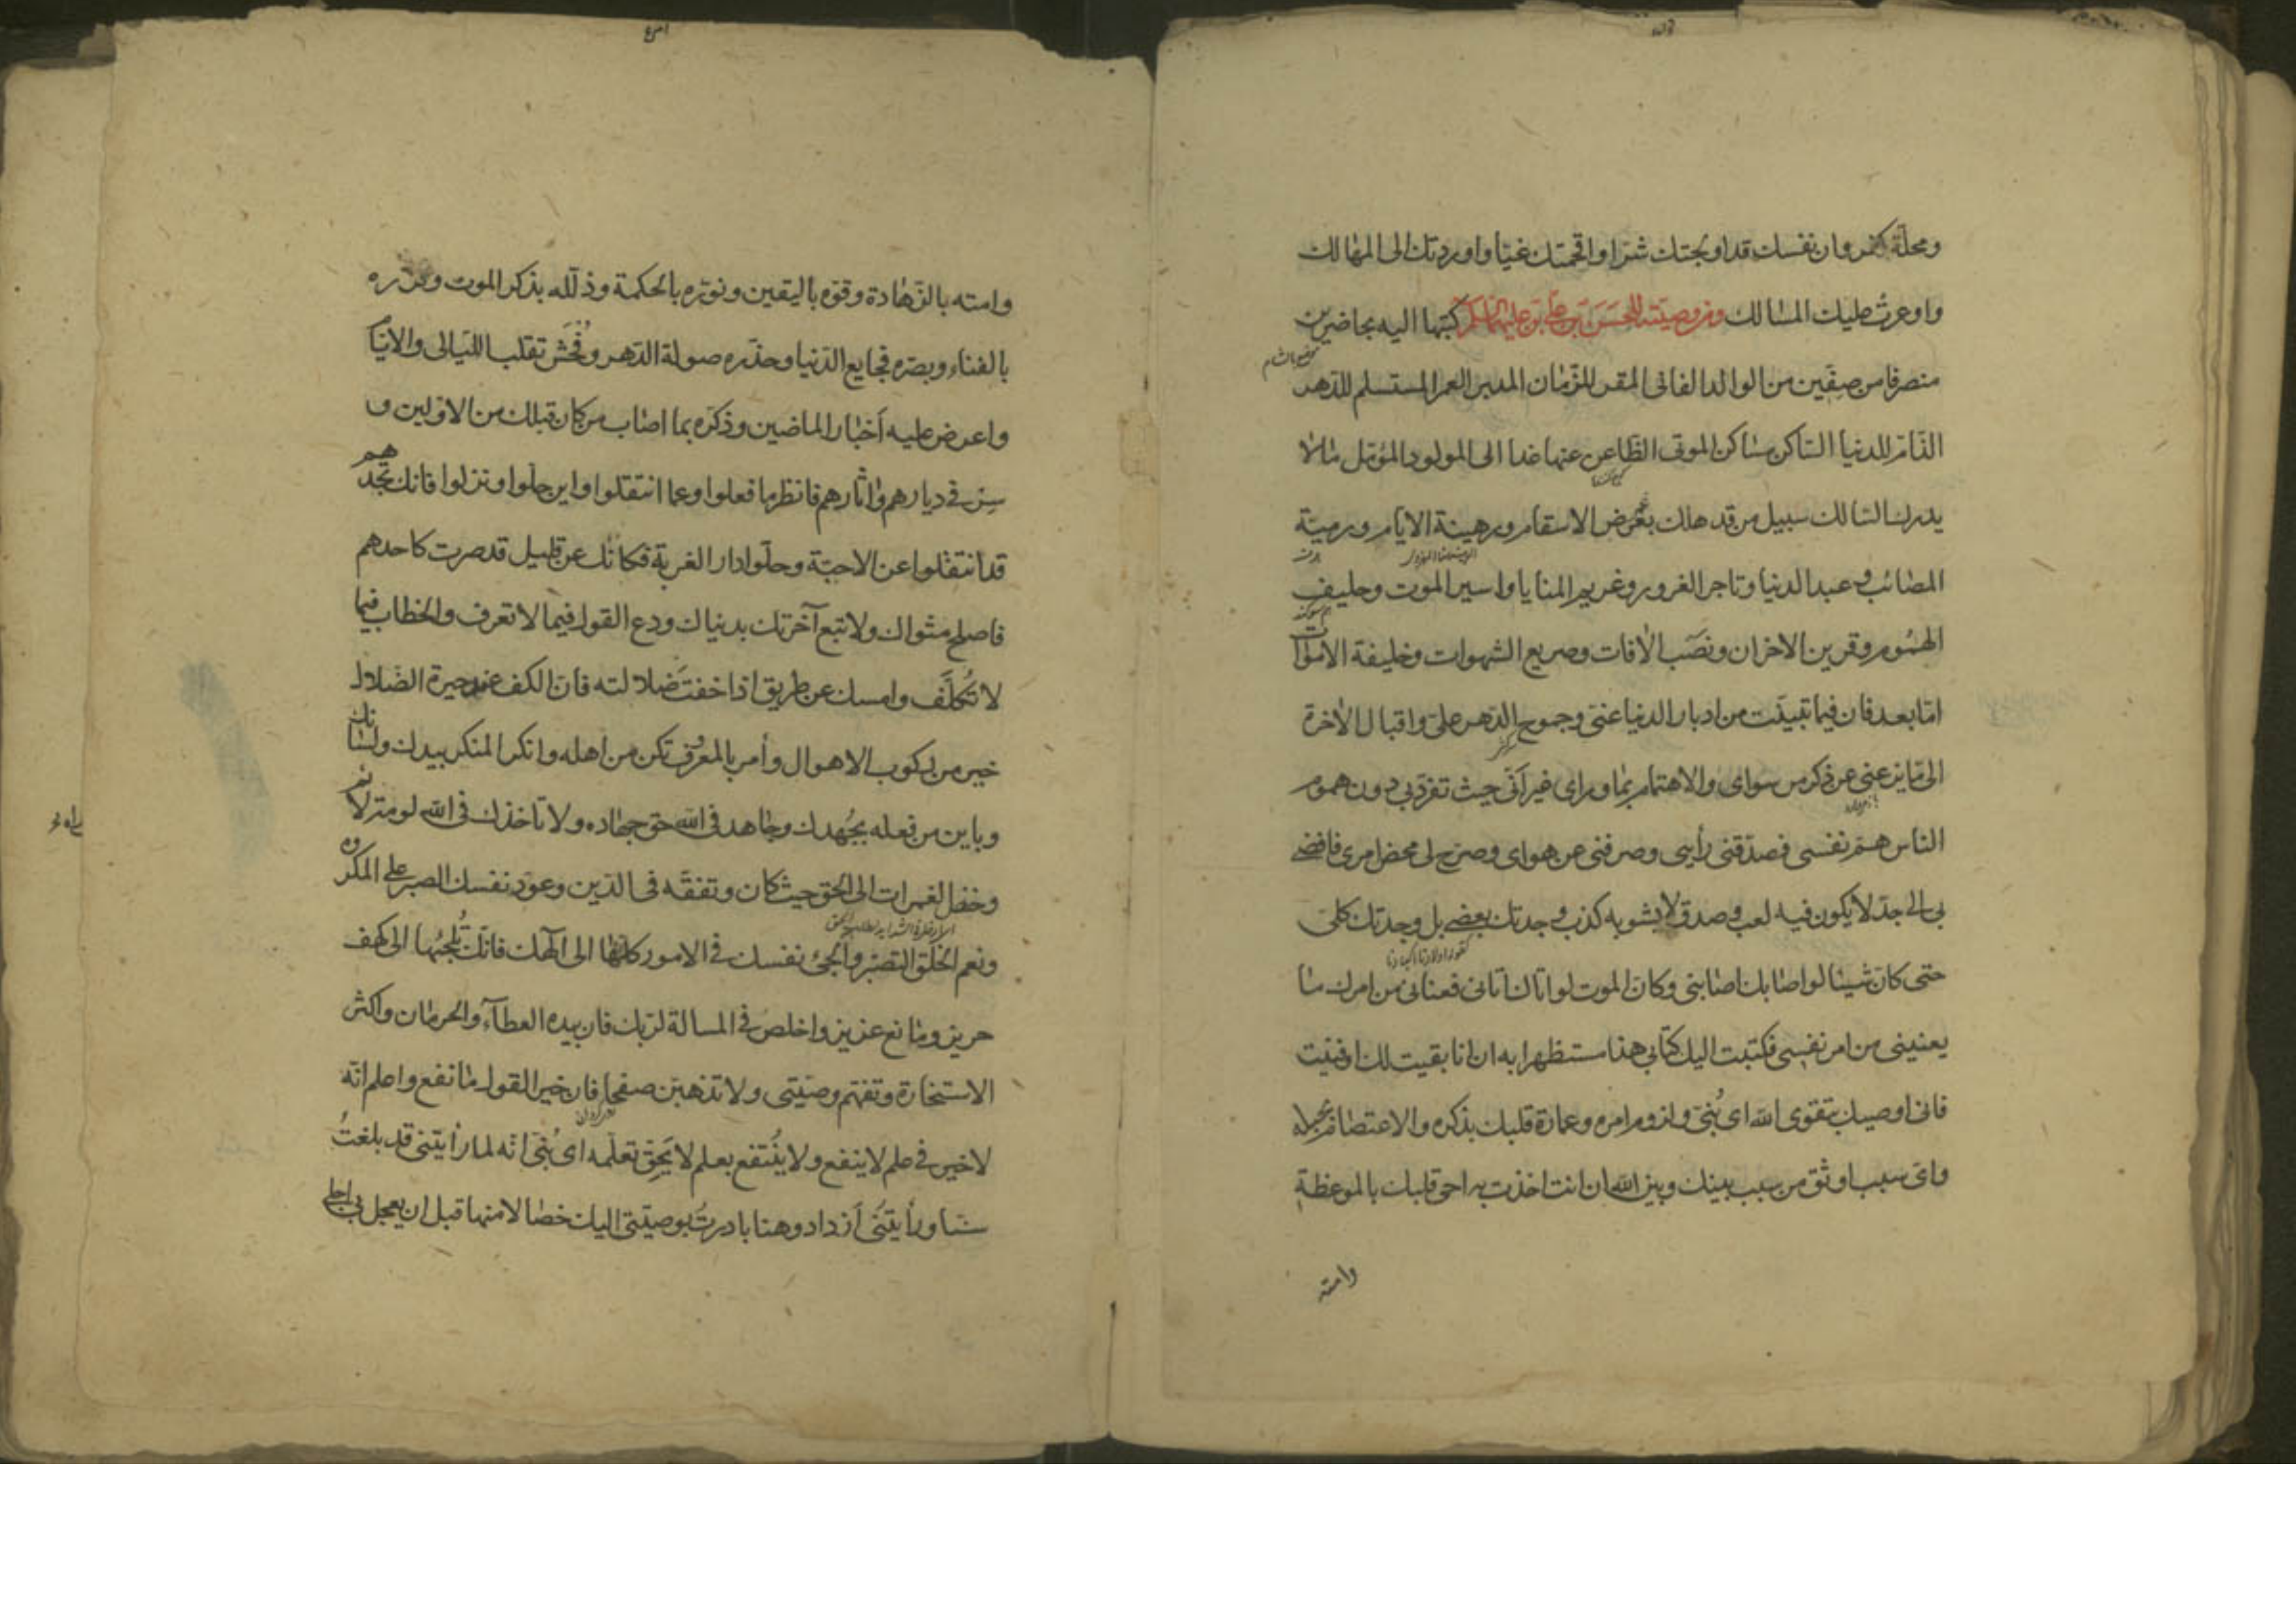 ومحلّة كفر وان نفسك قد اولجتك شرا واقحمتك غيّا واوردتك الى المهالك
واوعرتْ عليك المسالك ومن وصيّته للحسن بن علي عليهما السلم كتبها اليه بحاضرين
منصرفا من صفّين من الوالد الفانى المقر للزّمان المدبر العمر المستسلم للدّهر
الذّام للدنيا السّاكن مساكن الموتى الظّاعن عنها غدا الى المولود المؤمّل ما لا
يدرك السّالك سبيل من قد هلك غرض الاسقام ورهينة الايّام ورميّة
المصائب وعبد الدنيا وتاجر الغرور وغريم المنايا واسير الموت وحليف
الهموم وقرين الاحزان ونصب الآفات وصريع الشهوات وخليفة الاموات
امّا بعد فان فيما تبيّنت من ادبار الدنيا عنّى وجموح الدّهر علىّ واقبال الآخرة
الىّ ما يزعنى عن ذكر من سواى والاهتمام بما وراى غير أنّى حيث تفرّد بى دون هموم
الناس همّ نفسى فصدّقنى رأيى وصرفنى عن هواى وصرّح لى محض امرى فافضى
بى الى جدّ لا يكون فيه لعب وصدق لا يشوبه كذب وجدتك بعضى بل وجدتك كلّى
حتى كانّ شيئا لو اصابك اصابنى وكانّ الموت لو اتاك اتانى فعنانى من امرك ما
يعنينى من امر نفسى فكتبت اليك كتابى هذا مستظهرا به ان انا بقيت لك او فنيت
فانى اوصيك بتقوى الله اى بُنىّ ولزوم امره وعمارة قلبك بذكره والاعتصام بحبله
واىّ سبب اوثق من سبب بينك وبين الله ان انت اخذت به احى قلبك بالموعظة
وامته
وامته بالزّهادة وقوّه باليقين ونوّره بالحكمة وذلّله بذكر الموت وقرّره
بالفناء وبصّره فجايع الدّنيا وحذّره صولة الدّهر وفُحْش تقلّب اللّيالى والايّام
واعرض عليه أخبار الماضين وذكّره بما اصاب من كان قبلك من الاوّلين و
سِرْ فى ديارهم واثارهم فانظر ما فعلوا وعما انتقلوا واين حلّوا ونزلوا فانك تجدهم
قد انتقلوا عن الاحبّة وحلّوا دار الغربة فكانّك عن قليل قد صرت كاحدهم
فاصلح مثواك ولا تبع آخرتك بدنياك ودع القول فيما لا تعرف والخطاب فيما
لا تُكلَّف وامسك عن طريق اذا خفتَ ضلالته فانّ الكف عند حيرة الضّلال
خير من ركوب الاهوال وأمر بالمعروف تكن من اهله وانكر المنكر بيدك ولسانك
وباين من فعله بجُهدك وجاهد فى الله حق جهاده ولا تأخذك فى الله لومة لائم
وخض الغمرات الى الحق حيث كان وتفقّه فى الدّين وعوّد نفسك الصبر على المكروه
ونعم الخلق التصبّر والجئ نفسك فى الامور كلّها الى الهك فانّك تُلجئها الى كهف
حريز ومانع عزيز واخلص فى المسالة لربّك فان بيده العطآء والحرمان واكثر
الاستخارة وتفهّم وصيّتى ولا تذهبنّ صفحا فان خير القول ما نفع واعلم انّه
لا خير فى علم لا ينفع ولا يُنتفع بعلم لا يَحِقّ تعلّمه اى بُنىّ انّه لما رأيتنى قد بلغتُ
سنا ورأيتُنى أزداد وهنا بادرتُ بوصيّتى اليك خصالا منها قبل ان يعجل بى اجلى